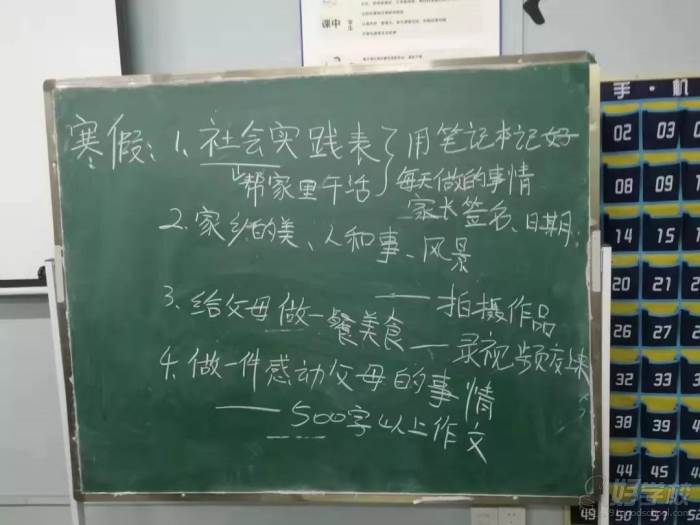 课中 学生
手·机
寒假：1、社会实践表 用笔记本记好
帮家里午活 每天做的事情
家长签名、日期；
2、家乡的美、人和事、风景
——拍摄作品
3、给父母做一餐美食——录视频交来
4、做一件感动父母的事情
——500字以上作文
02 03
08 09
14 15
20 21
26 27
32 33
38 39
44 45
49 50 51
好学校